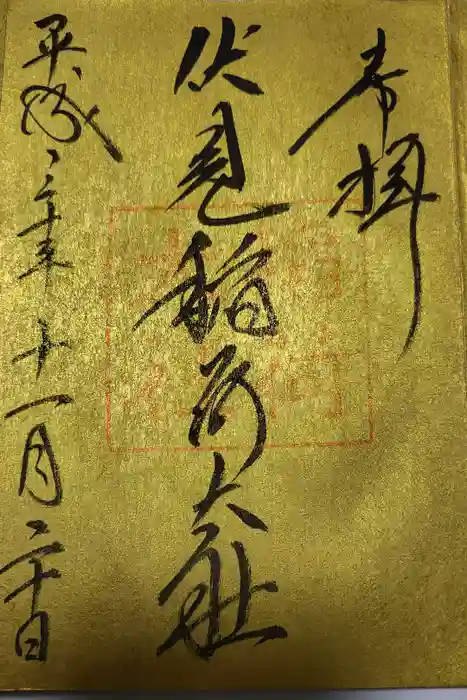 奉拝
伏見稲荷大社
平成三十年十一月二十日